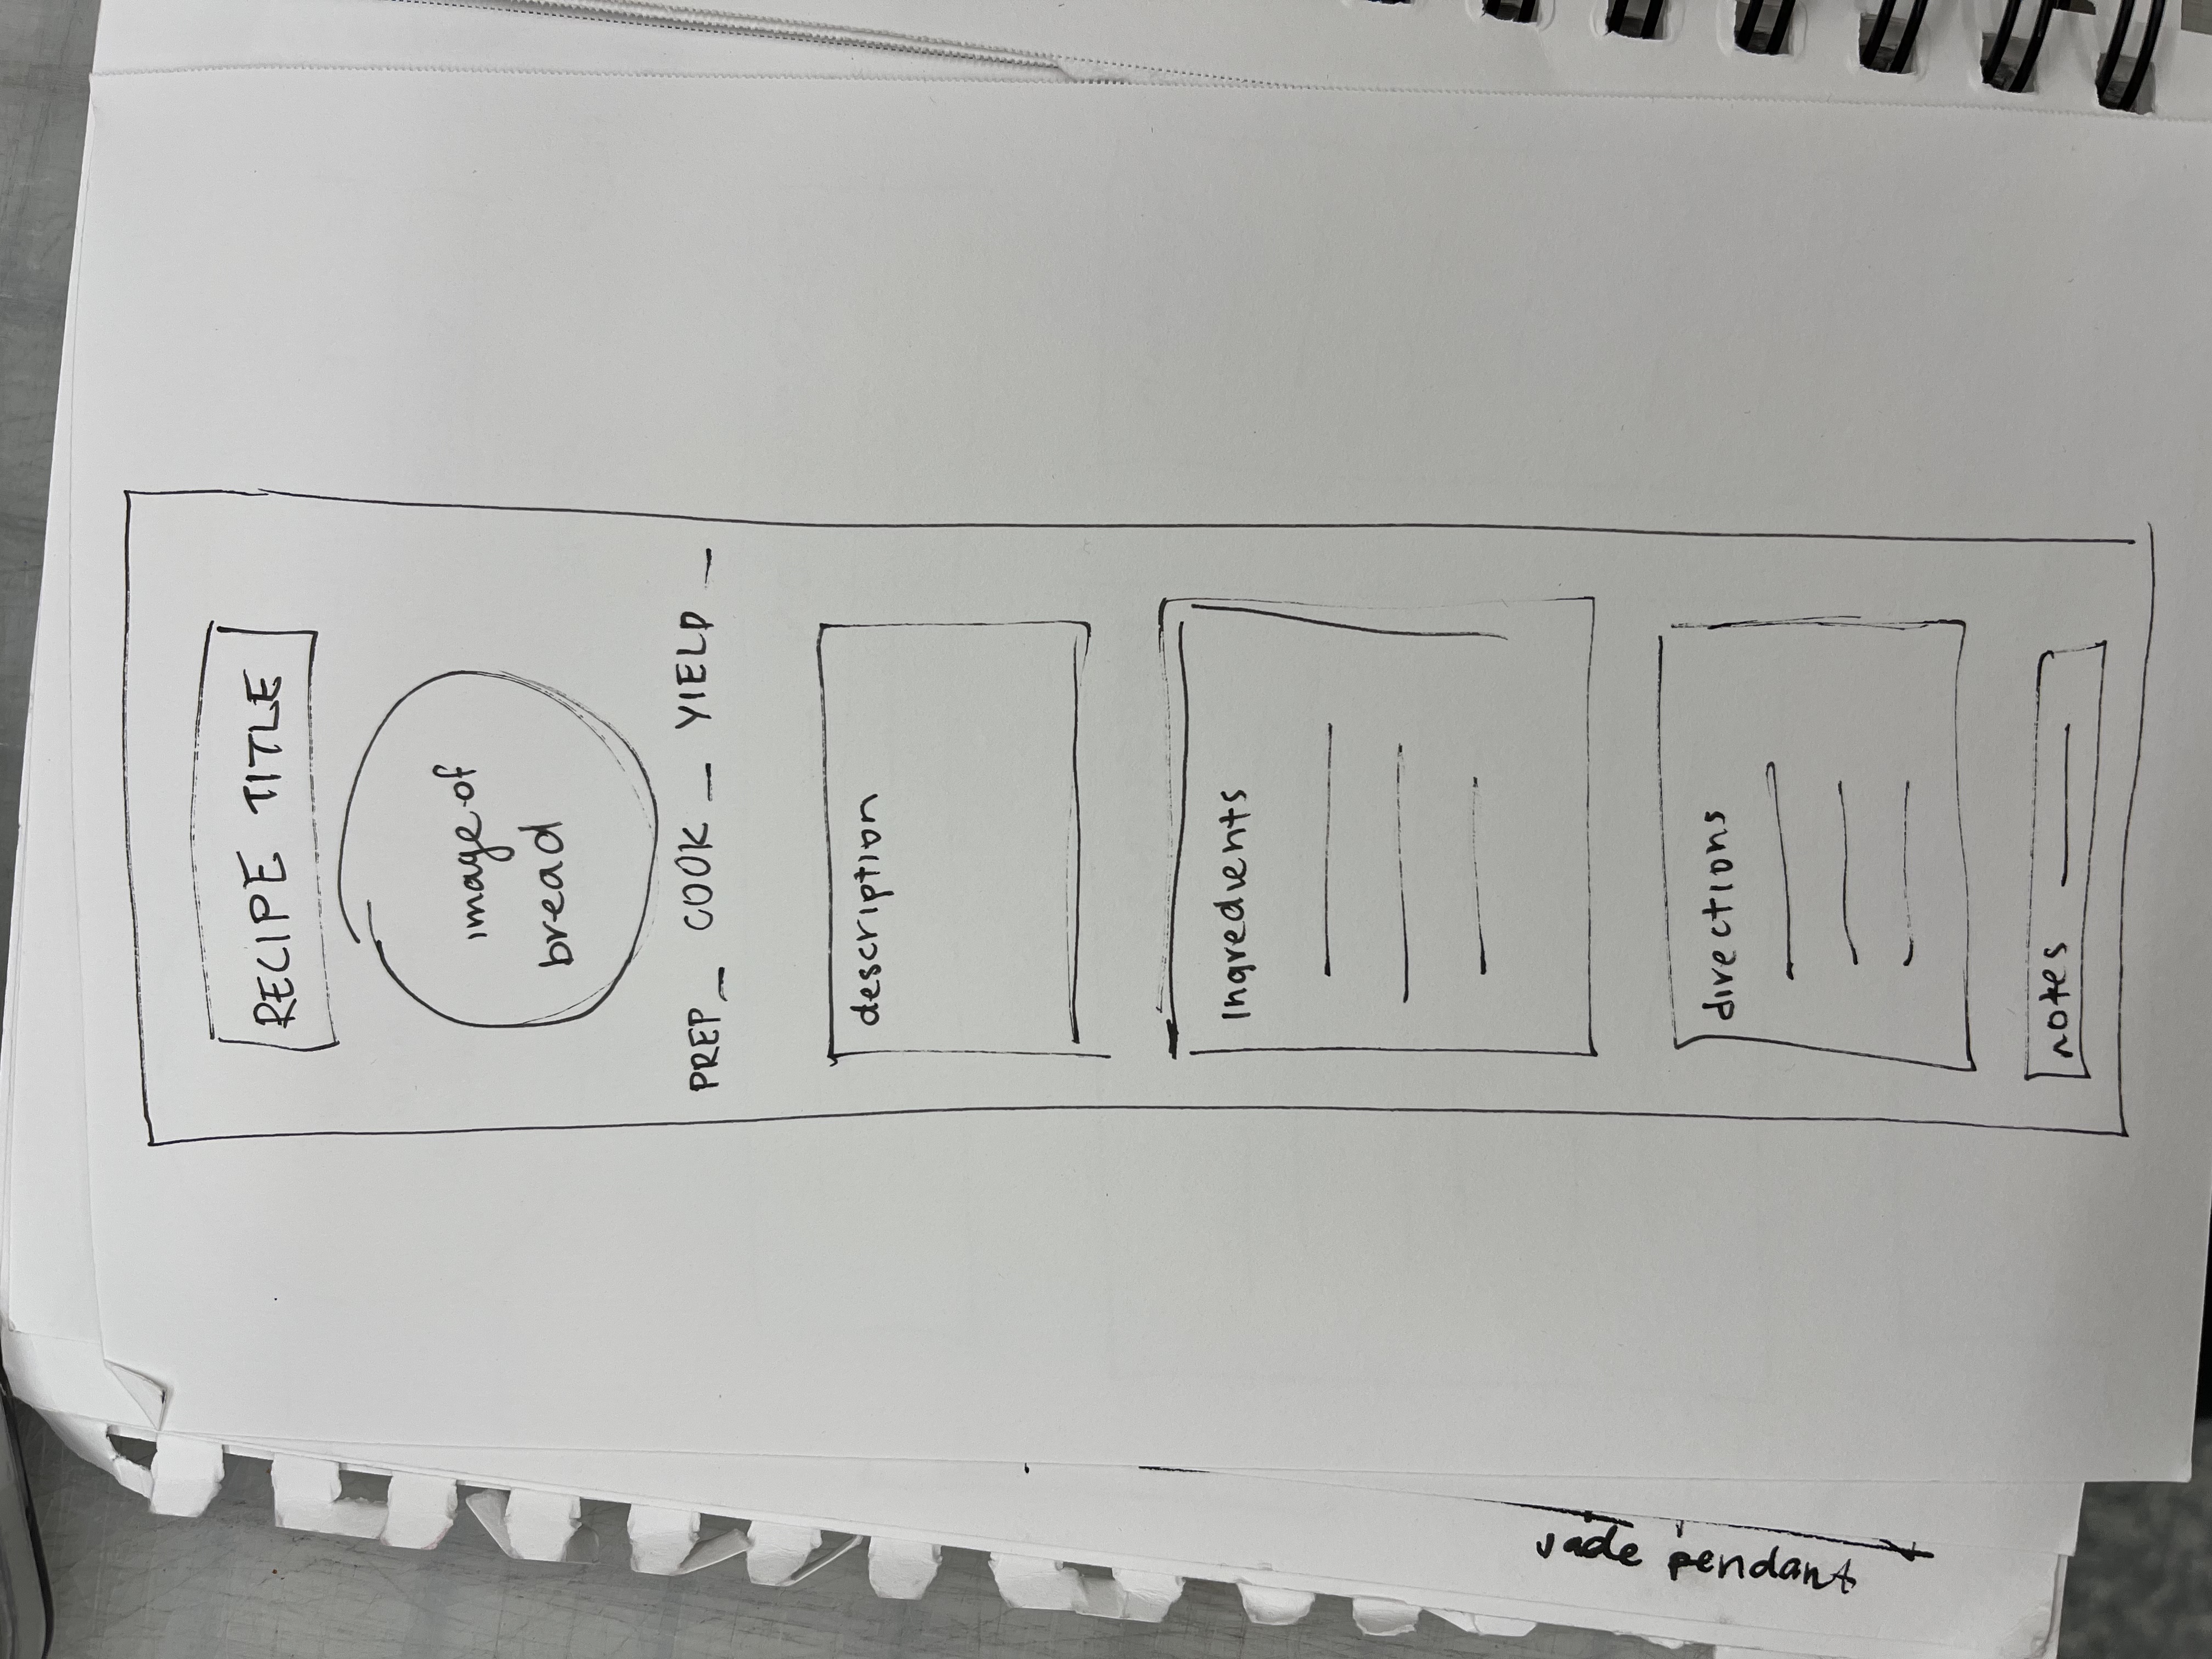 RECIPE TITLE
image of
bread
PREP_ COOK _ YIELD _
description
Ingredients
directions
notes
pendant